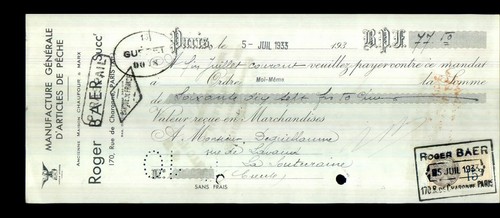 MANUFACTURE GÉNÉRALE
D'ARTICLES DE PÊCHE
ANCIENNE MAISON CHAUFOUR & MARX
Roger BAER Succ'
170, Rue de Charonne, PARIS
Paris, le 5 - JUIL 1933 193 B.P.F. 77 50
A Fin Juillet courant veuillez payer contre ce mandat
à Ordre Moi-Même la somme
de Soixante dix sept frs 50
Valeur reçue en Marchandises
A Monsieur Deguillaume
rue de Lavaud
La Souterraine
(Creuse)
SANS FRAIS
ROGER BAER
5 JUIL 1933
170 R. DE CHARONNE PARIS